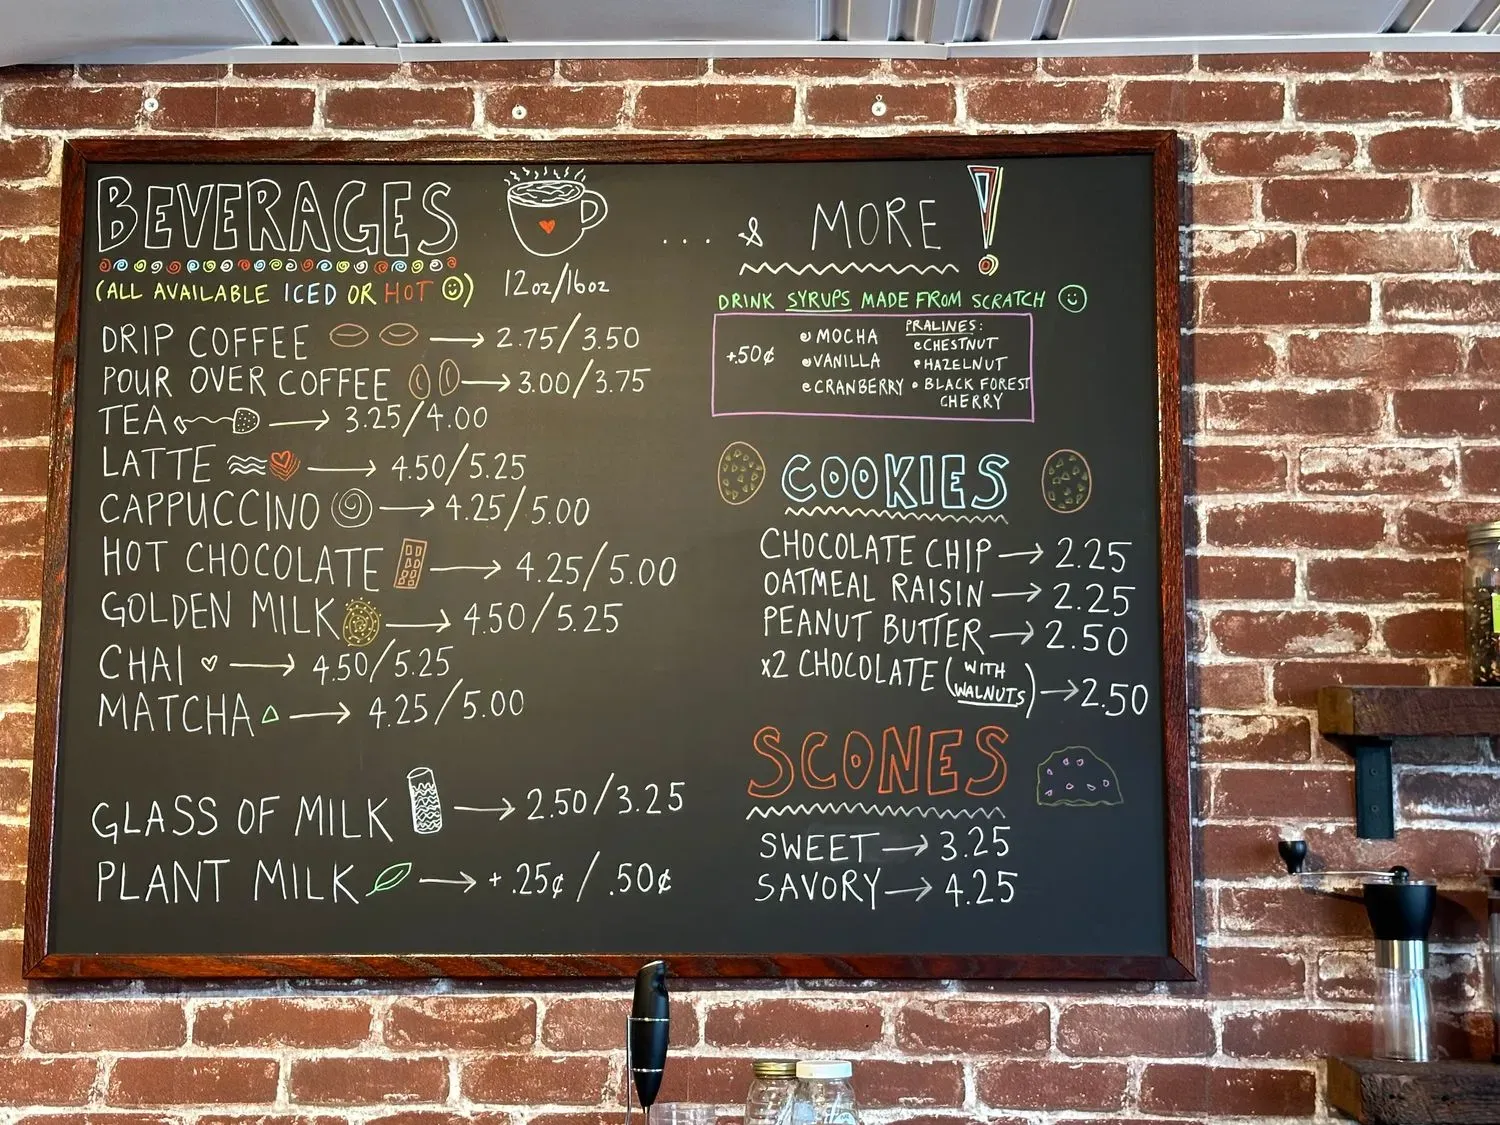 BEVERAGES
(ALL AVAILABLE ICED OR HOT ☺)
12oz/16oz
DRIP COFFEE → 2.75/3.50
POUR OVER COFFEE → 3.00/3.75
TEA → 3.25/4.00
LATTE → 4.50/5.25
CAPPUCCINO → 4.25/5.00
HOT CHOCOLATE → 4.25/5.00
GOLDEN MILK → 4.50/5.25
CHAI ♡ → 4.50/5.25
MATCHA → 4.25/5.00
GLASS OF MILK → 2.50/3.25
PLANT MILK → +.25¢/.50¢
... & MORE!
DRINK SYRUPS MADE FROM SCRATCH ☺
+.50¢
• MOCHA
• VANILLA
• CRANBERRY
PRALINES:
• CHESTNUT
• HAZELNUT
• BLACK FOREST
CHERRY
COOKIES
CHOCOLATE CHIP → 2.25
OATMEAL RAISIN → 2.25
PEANUT BUTTER → 2.50
x2 CHOCOLATE (WITH
WALNUTS) → 2.50
SCONES
SWEET → 3.25
SAVORY → 4.25